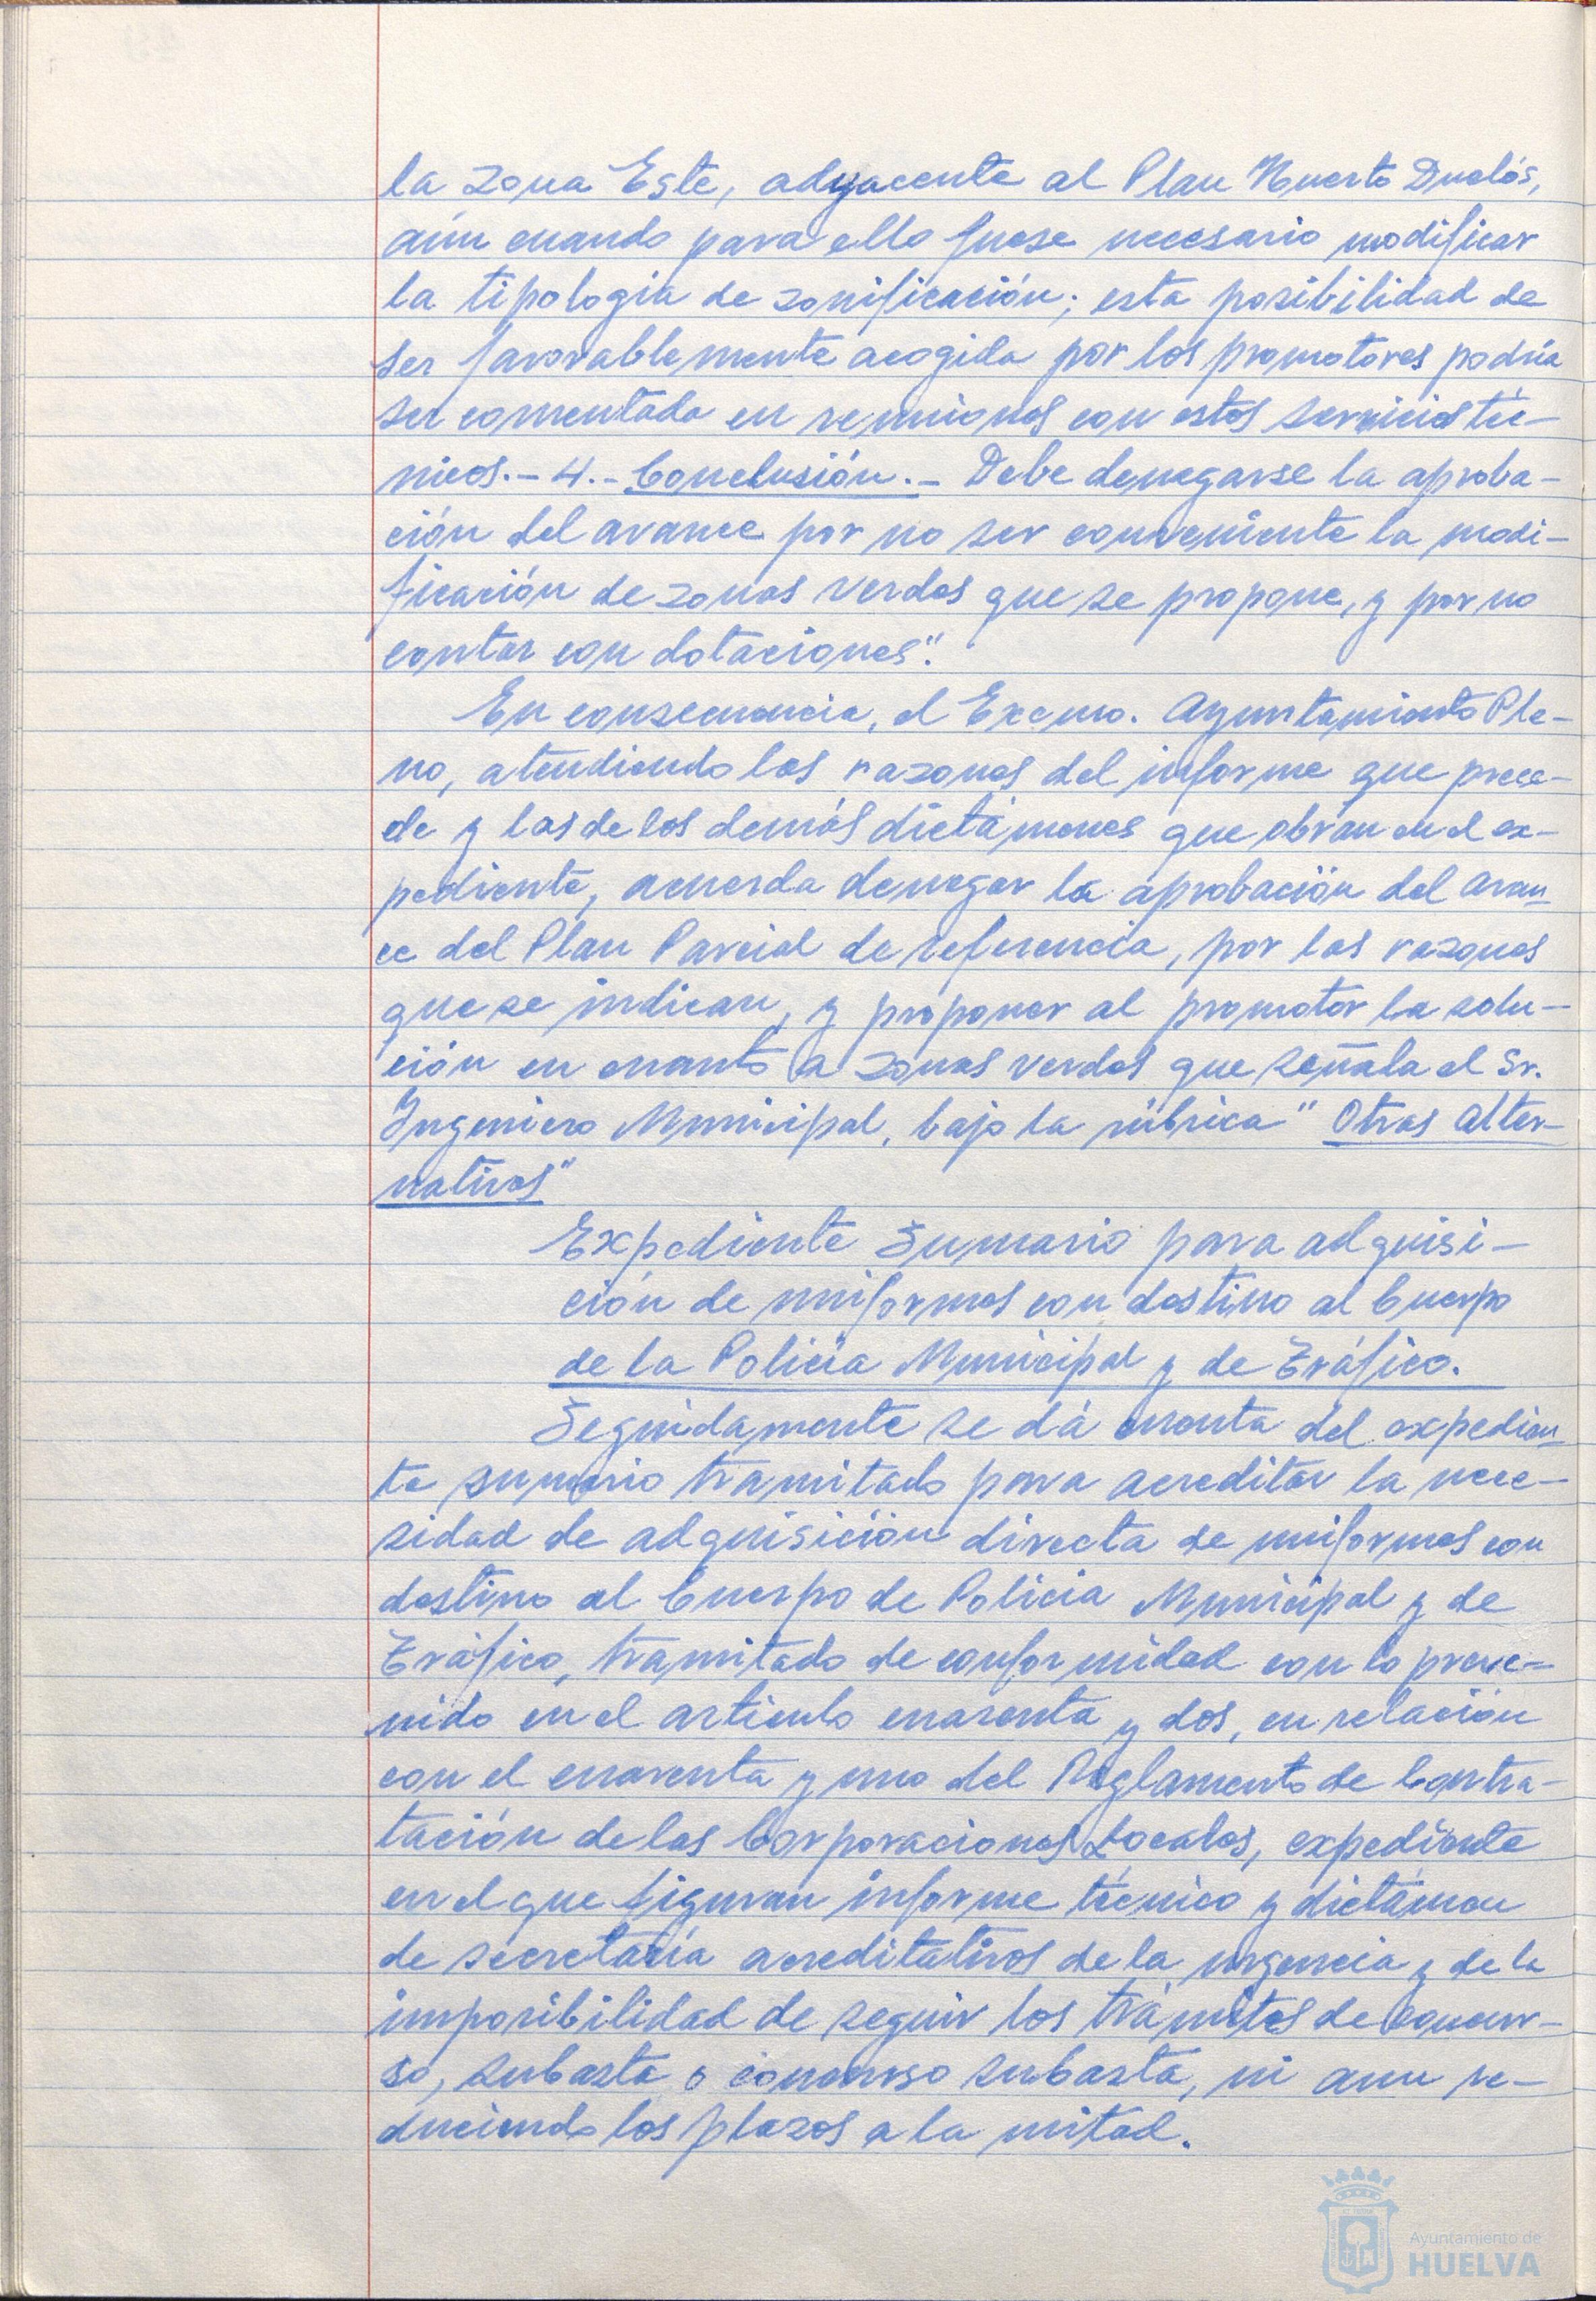 la zona Este, adyacente al Plan Huerto Duclós,
aún cuando para ello fuese necesario modificar
la tipologia de zonificación; esta posibilidad de
ser favorablemente acogida por los promotores podría
ser comentada en reuniones con estos servicios téc-
nicos.- 4.- Conclusión.- Debe denegarse la aproba-
ción del avance por no ser conveniente la modi-
ficación de zonas verdes que se propone, y por no
contar con dotaciones".
En consecuencia, el Excmo. Ayuntamiento Ple-
no, atendiendo las razones del informe que prece-
de y las de los demás dictámenes que obran en el ex-
pediente, acuerda denegar la aprobación del avan-
ce del Plan Parcial de referencia, por las razones
que se indican, y proponer al promotor la solu-
ción en cuanto a zonas verdes que señala el Sr.
Ingeniero Municipal, bajo la rúbrica "Otras alter-
nativas"
Expediente Sumario para adquisi-
ción de uniformes con destino al Cuerpo
de la Policia Municipal y de Tráfico.
Seguidamente se dá cuenta del expedien-
te sumario tramitado para acreditar la nece-
sidad de adquisición directa de uniformes con
destino al Cuerpo de Policia Municipal y de
Tráfico, tramitado de conformidad con lo preve-
nido en el articulo cuarenta y dos, en relación
con el cuarenta y uno del Reglamento de Contra-
tación de las Corporaciones Locales, expediente
en el que figuran informe técnico y dictámen
de secretaría acreditativos de la urgencia y de la
imposibilidad de seguir los trámites de Concur-
so, subasta o concurso subasta, ni aun re-
duciendo los plazos a la mitad.
Ayuntamiento de
HUELVA